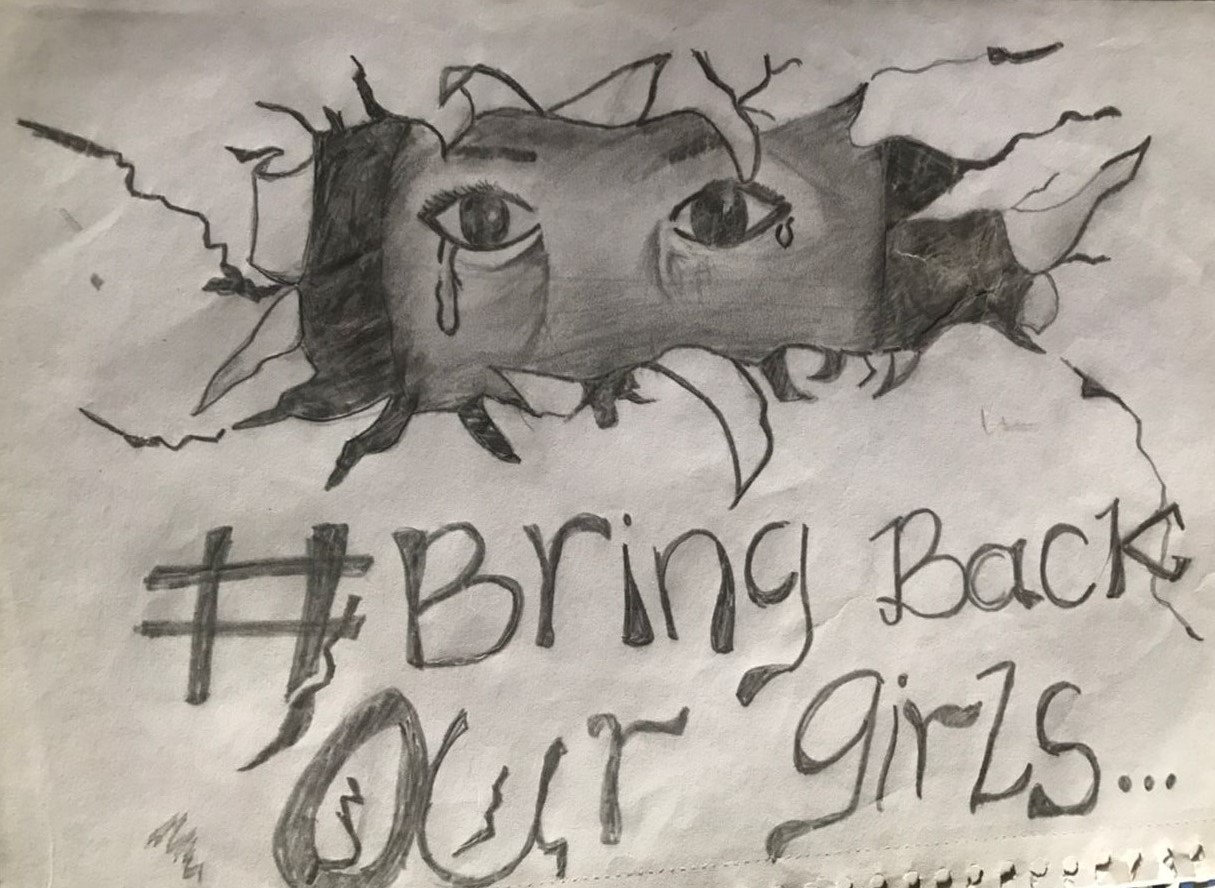 #Bring Back
Our girls...